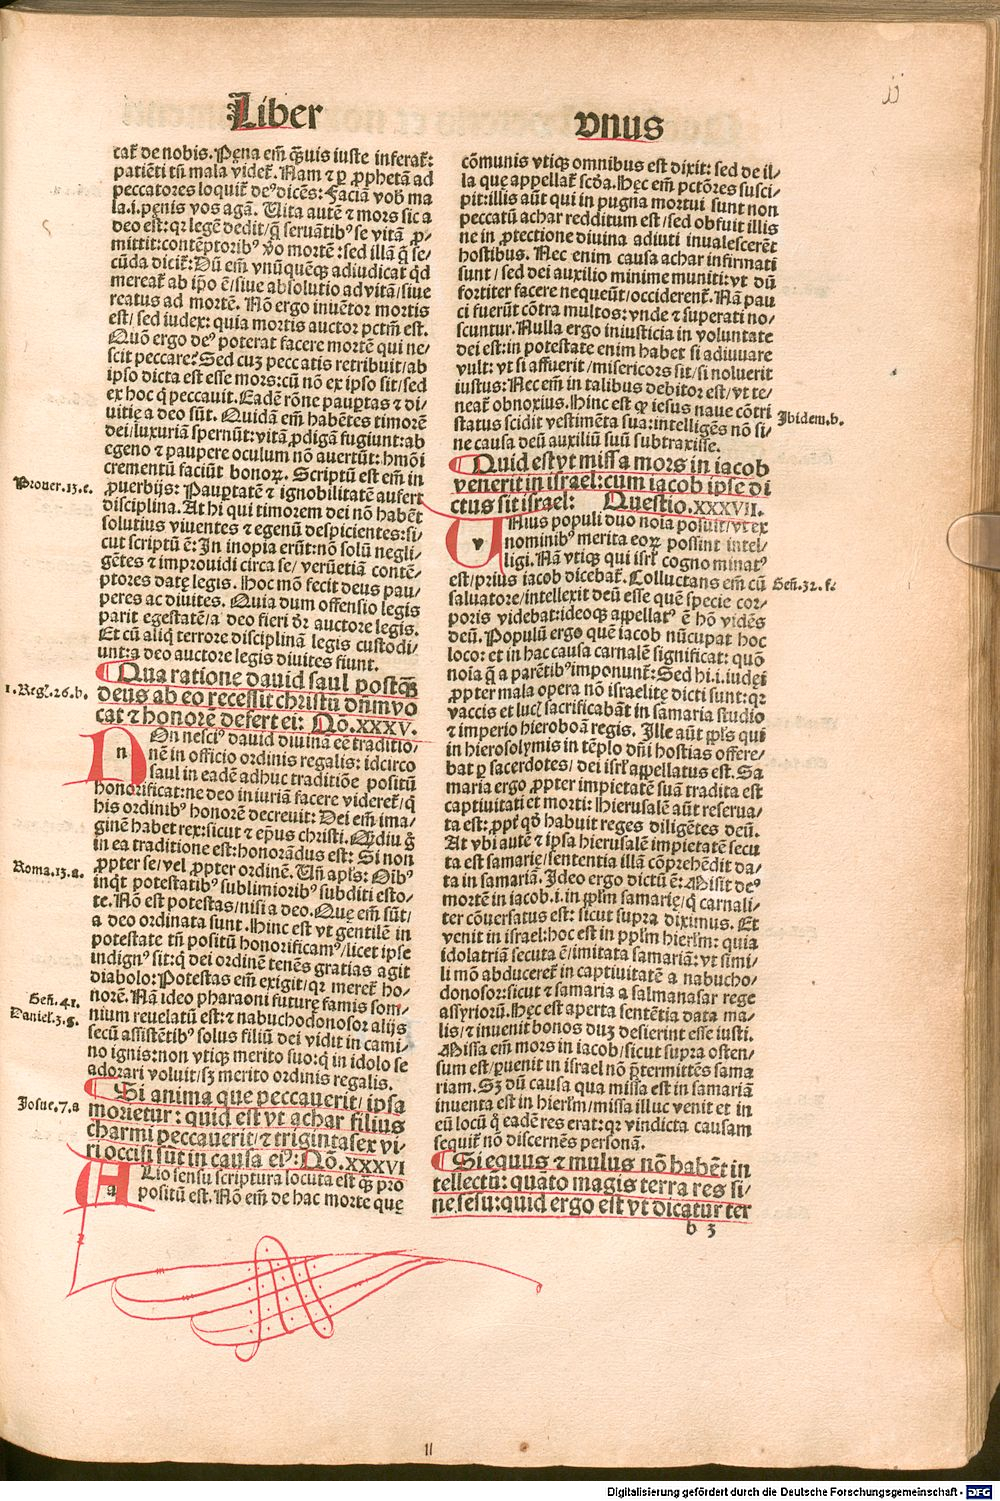 Liber
vnus
tat̃ de nobis. Pęna em̃ q̃uis iuste inferat̃:
patiẽti tñ mala videt̃. Nam ⁊ ꝑ ꝓphetã ad
peccatores loquit̃ deꝰ dicẽs: Faciã vob̃ ma
la.i. pęnis vos agã. Vita autẽ ⁊ mors sic a
deo est: qꝛ legẽ dedit/ q̃ seruãtibꝰ se vitã ꝓ/
mittit: contẽptoribꝰ ỹo mortẽ: sed illã q̃ se/
cũda dicit̃: Dũ em̃ vnũquẽqꝫ adiudicat q̃d
mereat̃ ab ip̃o ẽ/ siue absolutio ad vitã/ siue
reatus ad mortẽ. Nõ ergo inuẽtor mortis
est/ sed iudex: quia mortis auctor pctm̃ est.
Quõ ergo deꝰ poterat facere mortẽ qui ne/
scit peccare? Sed cuꝫ peccatis retribuit/ ab
ipso dicta est esse mors: cũ nõ ex ipso sit/ sed
ex hoc q̃ peccauit. Eadẽ rõne paupꝛtas ⁊ di/
uitię a deo sũt. Quidã em̃ habẽtes timorẽ
dei/ luxuriã spernũt: vitã ꝓdigã fugiunt: ab
egeno ⁊ paupere oculum nõ auertũt: hmõi
crementũ faciũt bonoꝝ. Scriptũ est em̃ in
ꝓuerbijs: Paupꝛtatẽ ⁊ ignobilitatẽ aufert
disciplina. At hi qui timorem dei nõ habẽt
solutius viuentes ⁊ egenũ despicientes: si/
cut scriptũ ẽ: In inopia erũt: nõ solũ negli/
gẽtes ⁊ improuidi circa se/ verũetiã contẽ/
ptores datę legis. Hoc mõ fecit deus pau/
peres ac diuites. Quia dum offensio legis
parit egestatẽ/ a deo fieri dr̃ auctore legis.
Et cũ aliq̃ terrore disciplinã legis custodi/
unt: a deo auctore legis diuites fiunt.
Qua ratione dauid saul postq̃ꝫ
deus ab eo recessit christũ dñm vo
cat ⁊ honorẽ defert ei: Q̃o. XXXV.
NOn nesciꝰ dauid diuinã eẽ traditio/
nẽ in officio ordinis regalis: idcirco
saul in eadẽ adhuc traditiõe positũ
honorificat: ne deo iniuriã facere videret̃/ q̃
his ordinibꝰ honorẽ decreuit: Dei em̃ ima/
ginẽ habet rex: sicut ⁊ ep̃us christi. Q̃diu g̊
in ea traditione est: honorãdus est: Si non
ꝓpter se/ vel ꝓpter ordinẽ. Vñ apl̃s: Oĩbꝰ
inq̃t potestatibꝰ sublimioribꝰ subditi esto/
te. Nõ est potestas/ nisi a deo. Quę em̃ sũt/
a deo ordinata sunt. Hinc est vt gentilẽ in
potestate tñ positũ honorificamꝰ/ licet ipse
indignꝰ sit: q̃ dei ordinẽ tenẽs gratias agit
diabolo: Potestas em̃ exigit/ qꝛ meret̃ ho/
norẽ. Nã ideo pharaoni futurę famis som/
nium reuelatũ est: ⁊ nabuchodonosor alijs
secũ assistẽtibꝰ solus filiũ dei vidit in cami/
no ignis: non vtiqꝫ merito suo: q̃ in idolo se
adorari voluit/ sꝫ merito ordinis regalis.
Si anima que peccauerit/ ipsa
morietur: quid est vt achar filius
charmi peccauerit/ ⁊ trigintasex vi/
ri occisi sũt in causa eiꝰ: Q̃o. XXXVI
ALio sensu scriptura locuta est q̃ꝫ pro
positũ est. Nõ em̃ de hac morte quę
cõmunis vtiqꝫ omnibus est dixit: sed de il/
la quę appellat̃ scđa. Hęc em̃ pctõres susci/
pit: illis aũt qui in pugna mortui sunt non
peccatũ achar redditum est/ sed obfuit illis
ne in ꝓtectione diuina adiuti inualescerẽt
hostibus. Nec enim causa achar infirmati
sunt/ sed dei auxilio minime muniti: vt dũ
fortiter facere nequeũt/ occiderent̃. Nã pau
ci fuerũt cõtra multos: vnde ⁊ superati no/
scuntur. Nulla ergo iniusticia in voluntate
dei est: in potestate enim habet si adiuuare
vult: vt si affuerit/ misericors sit/ si noluerit
iustus: Nec em̃ in talibus debitor est/ vt te/
neat̃ obnoxius. Hinc est q̃ iesus naue cõtri
status scidit vestimẽta sua: intelligẽs nõ si/
ne causa deũ auxiliũ suũ subtraxisse.
Quid est vt missa mors in iacob
venerit in israel: cum iacob ipse di
ctus sit israel: Questio. XXXVII.
VNius populi duo noĩa posuit/ vt ex
nominibꝰ merita eoꝝ possint intel/
ligi. Nã vtiqꝫ qui isrl̃ cognominatꝰ
est/ prius iacob dicebat̃. Colluctans em̃ cũ
saluatore/ intellexit deũ esse quẽ specie cor/
poris videbat: ideoqꝫ appellatꝰ ẽ hõ vidẽs
deũ. Populũ ergo quẽ iacob nũcupat hoc
loco: et in hac causa carnalẽ significat: quõ
noĩa q̃ a parẽtibꝰ imponunt̃: Sed hi.i. iudęi
ꝓpter mala opera nõ israelitę dicti sunt: qꝛ
vaccis et lucꝭ sacrificabãt in samaria studio
⁊ imperio hieroboã regis. Ille aũt ppl̃s qui
in hierosolymis in tẽplo dñi hostias offere/
bat ꝑ sacerdotes/ dei isrl̃ appellatus est. Sa
maria ergo ꝓpter impietatẽ suã tradita est
captiuitati et morti: Hierusalẽ aũt reserua/
ta est: ꝓpt̃ qđ habuit reges diligẽtes deũ.
At vbi autẽ ⁊ ipsa hierusalẽ impietatẽ secu
ta est samarię/ sententia illã cõprehẽdit da/
ta in samariã. Ideo ergo dictũ ẽ: Misit deꝰ
mortẽ in iacob.i. in ppl̃m samarię/ q̃ carnali/
ter cõuersatus est: sicut supra diximus. Et
venit in israel: hoc est in pplm̃ hierl̃m: quia
idolatriã secuta ẽ/ imitata samariã: vt simi/
li mõ abduceret̃ in captiuitatẽ a nabucho/
donosor: sicut ⁊ samaria a salmanasar rege
assyriorũ. Hęc est aperta sentẽtia data ma/
lis/ ⁊ inuenit bonos duꝫ desierint esse iusti.
Missa em̃ mors in iacob/ sicut supra osten/
sum est/ ꝑuenit in israel nõ p̃termittẽs sama
riam. Sꝫ dũ causa qua missa est in samariã
inuenta est in hierl̃m/ missa illuc venit et in
eũ locũ q̃ eadẽ res erat: qꝛ vindicta causam
sequit̃ nõ discernẽs personã.
Si equus ⁊ mulus nõ habẽt in
tellectũ: quãto magis terra res si/
ne sẽsu: quid ergo est vt dicatur ter
b 3
Prouer.13.c.
1.Regl̃.26.b.
Roma.13.a.
Geñ.41.
Daniel̃.3.g.
Josue.7.a
Ibidem.b.
Geñ.32.f.
11
Digitalisierung gefördert durch die Deutsche Forschungsgemeinschaft - DFG